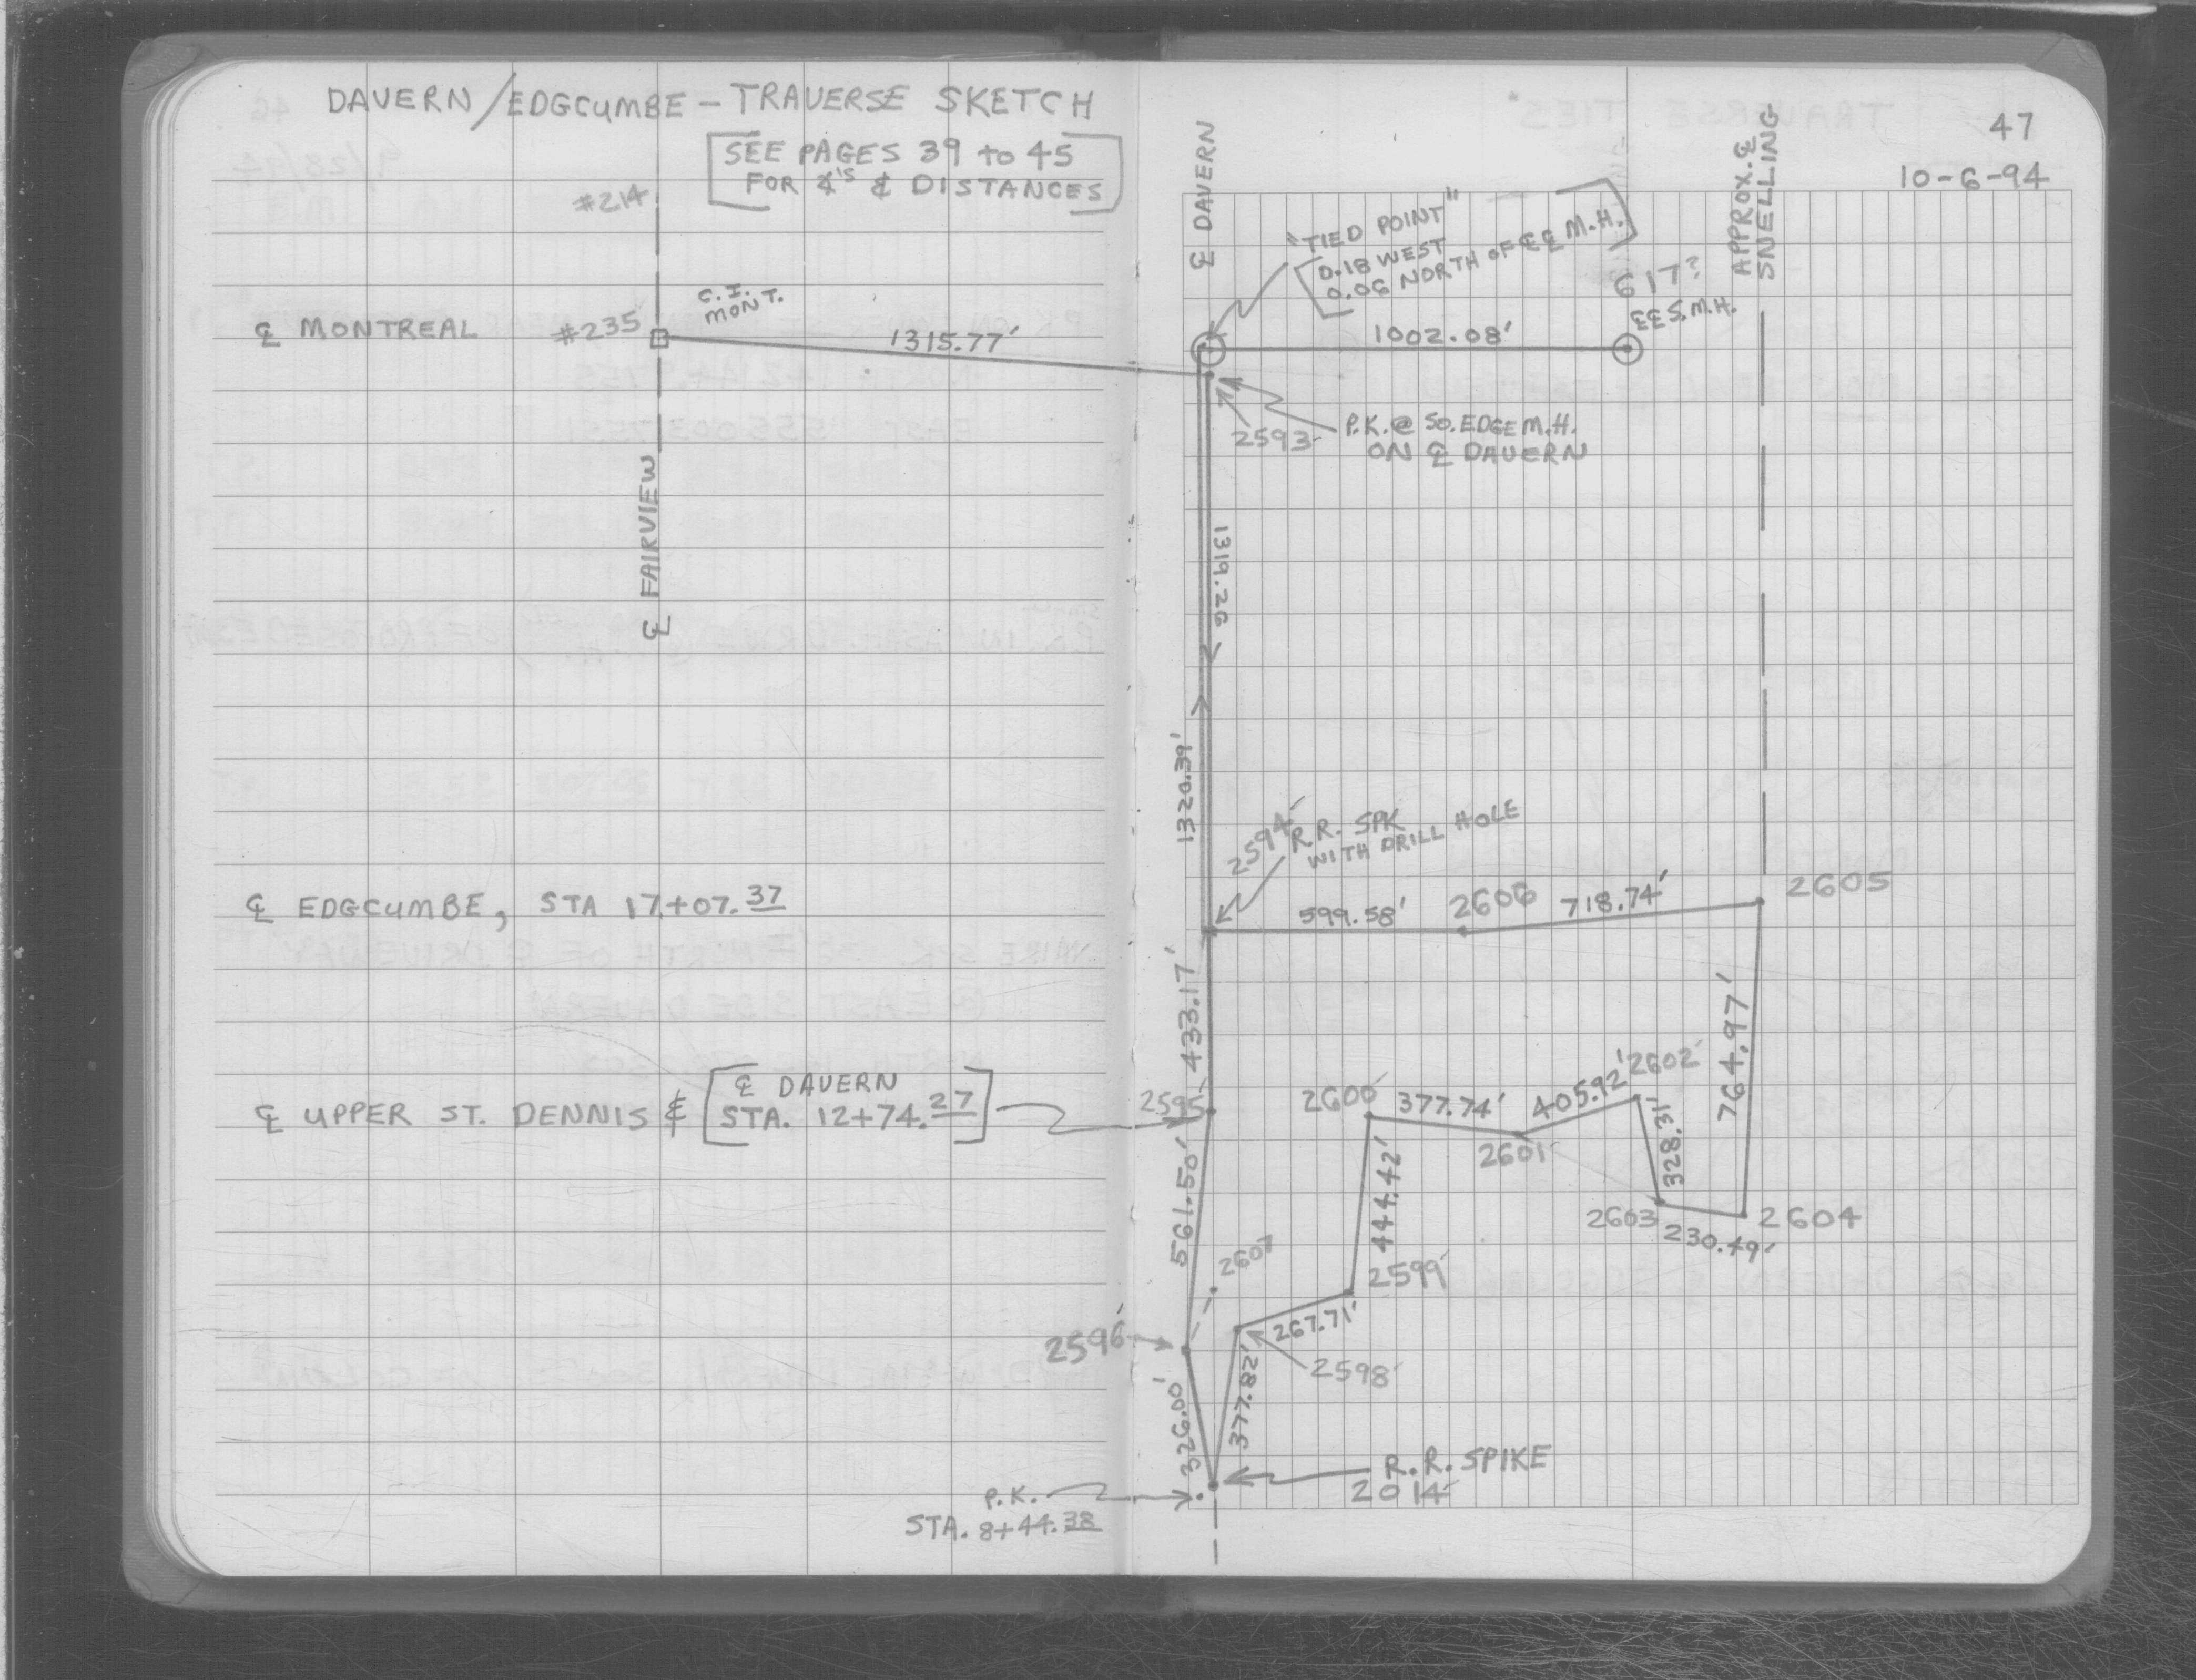 DAVERN/EDGCUMBE – TRAVERSE SKETCH
SEE PAGES 39 to 45
FOR ∡'S & DISTANCES
47
10-6-94
#214
℄ MONTREAL
#235
C.I.
MONT.
1315.77'
℄ FAIRVIEW
℄ DAVERN
"TIED POINT"
0.18 WEST
0.06 NORTH OF ℄℄ M.H.
1002.08'
617?
℄℄ S.M.H.
APPROX. ℄
SNELLING
2593
P.K. @ SO. EDGE M.H.
ON ℄ DAVERN
1319.26
1320.39'
2594
R.R. SPK
WITH DRILL HOLE
℄ EDGCUMBE, STA 17+07.37
599.58'
2606
718.74'
2605
433.17'
764.97'
℄ UPPER ST. DENNIS &
℄ DAVERN
STA. 12+74.27
2595
2600
377.74'
405.92'
2602
2601
328.31'
444.42'
2603
2604
230.49'
561.50'
2607
2599
267.71'
2596
2598
377.82'
326.00'
R.R. SPIKE
2014
P.K.
STA. 8+44.38